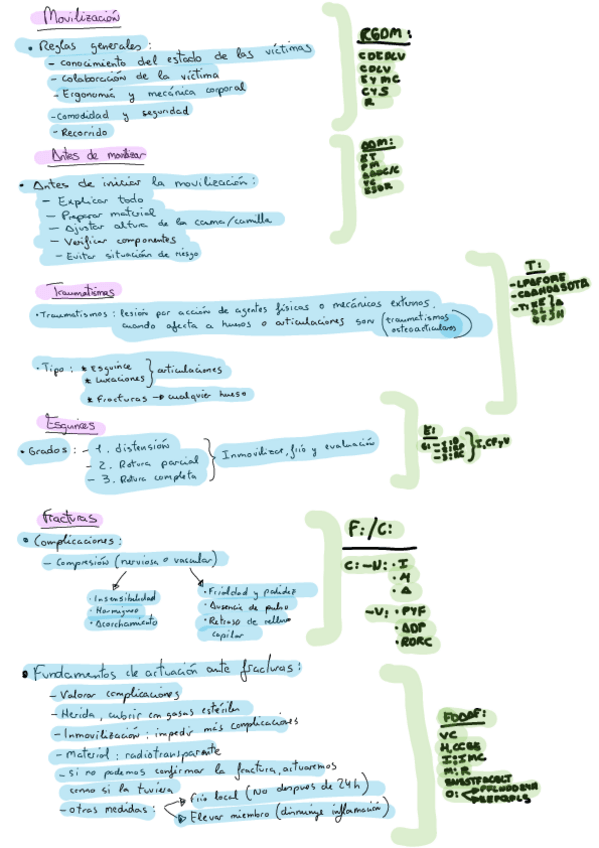 Movilización
• Reglas generales:
- conocimiento del estado de las víctimas
- colaboración de la víctima
- Ergonomía y mecánica corporal
- comodidad y seguridad
- Recorrido
RGDM:
CDEDLV
CDLV
EYMC
CYS
R
Antes de movilizar
• Antes de iniciar la movilización:
- Explicar todo
- Preparar material
- Ajustar altura de la cama/camilla
- Verificar componentes
- Evitar situación de riesgo
ET
PM
VC
Traumatismos
• Traumatismos: lesión por acción de agentes físicos o mecánicos externos,
cuando afecta a huesos o articulaciones son (traumatismos
osteoarticulares)
• Tipo: * Esguince
* Luxaciones } articulaciones
* Fracturas → cualquier hueso
T:
Esguinces
• Grados: - 1. distensión
- 2. Rotura parcial
- 3. Rotura completa
Inmovilizar, frío y evaluación
E:
G: - 1:D
- 2:RP
- 3:RC
Fracturas
• Complicaciones:
- Compresión (nerviosa o vascular)
• Insensibilidad
• Hormigueo
• Acorchamiento
• Frialdad y palidez
• Ausencia de pulso
• Retraso de relleno
capilar
F:/C:
C: -N: • I
• H
• A
-V: • FYP
• ADP
• RDRC
• Fundamentos de actuación ante fracturas:
- Valorar complicaciones
- Herida, cubrir con gasas estériles
- Inmovilización: impedir más complicaciones
- Material: radiotransparente
- si no podemos confirmar la fractura, actuaremos
como si la tuviera
- otras medidas: Frío local (no después de 24h)
Elevar miembro (disminuye inflamación)
FDAAF:
VC
H,CCGE
I:IMC
M:R
O: